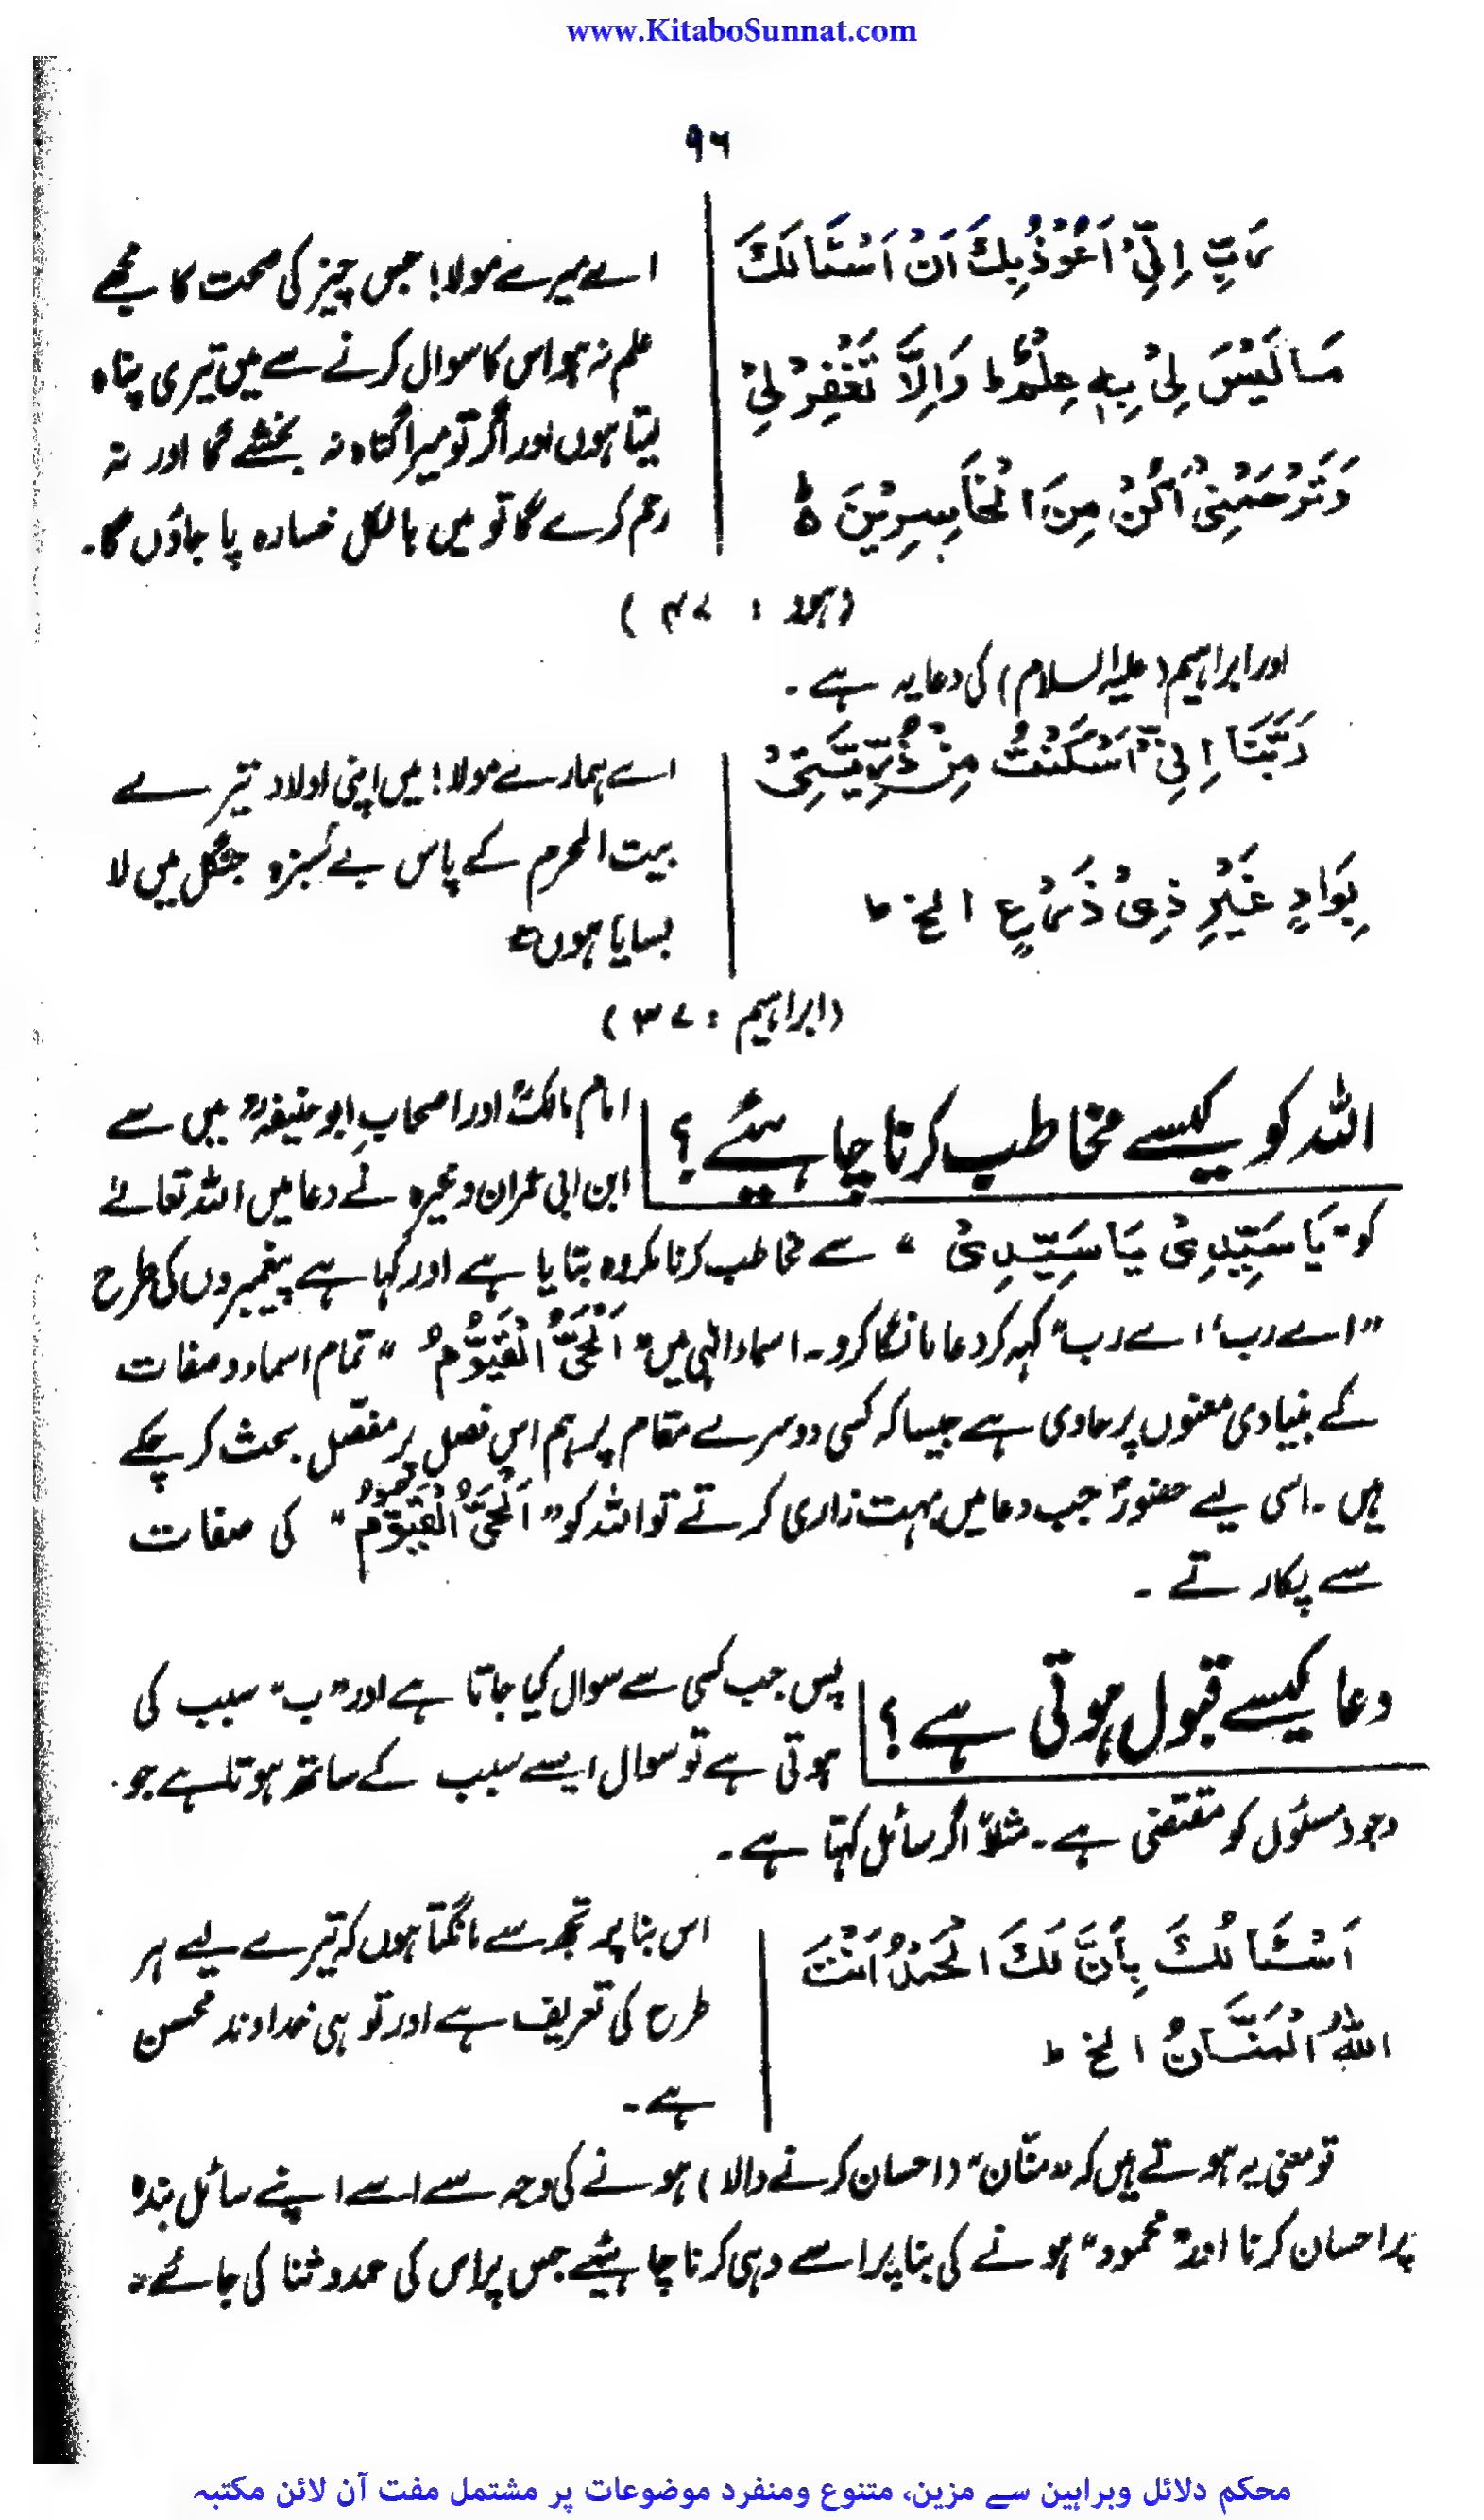 www.KitaboSunnat.com
۹۶
رَبِّ اِنِّیْٓ اَعُوْذُ بِكَ اَنْ اَسْئَالَكَ
مَا لَیْسَ لِیْ بِهٖ عِلْمٌ ط وَاِلَّا تَغْفِرْ لِیْ
وَتَرْحَمْنِیْٓ اَكُنْ مِنَ الْخَاسِرِیْنَ ہ
اے میرے مولا! جس چیز کی صحت کا مجھے
علم نہ ہو اس کا سوال کرنے سے میں تیری پناہ
لیتا ہوں اور اگر تو میرا گناہ نہ بخشے گا اور نہ
رحم کرے گا تو میں بالکل خسارہ پا جاؤں گا۔
(ہود : ۴۷)
اور ابراہیم (علیہ السلام) کی دعا یہ ہے۔
رَبَّنَا اِنِّیْٓ اَسْكَنْتُ مِنْ ذُرِّیَّتِیْ
بِوَادٍ غَیْرِ ذِیْ ذَرْعٍ الخ ط
اے ہمارے مولا! میں اپنی اولاد تیرے
بیت الحرم کے پاس بے سبزہ جنگل میں لا
بسایا ہوں۔
(ابراہیم : ۳۷)
اللہ کو کیسے مخاطب کرنا چاہیئے؟
امام مالکؒ اور اصحاب ابو حنیفہؒ میں سے
ابن ابی عمران وغیرہ نے دعا میں اللہ تعالےٰ
کو "یَا سَیِّدِیْ یَا سَیِّدِیْ" سے مخاطب کرنا مکروہ بتایا ہے اور کہا ہے پیغمبروں کی طرح
"اے رب، اے رب" کہہ کر دعا مانگا کرو۔ اسماء الٰہی میں "اَلْحَیُّ الْقَیُّوْمُ" تمام اسماء وصفات
کے بنیادی معنوں پر حاوی ہے جیسا کہ کسی دوسرے مقام پر ہم اس فصل پر مفصل بحث کر چکے
ہیں۔ اسی لیے حضورؐ جب دعا میں بہت زاری کرتے تو اللہ کو "اَلْحَیُّ الْقَیُّوْمُ" کی صفات
سے پکارتے۔
دعا کیسے قبول ہوتی ہے؟
پس جب کسی سے سوال کیا جاتا ہے اور "ب" سبب کی
ہوتی ہے تو سوال ایسے سبب کے ساتھ ہوتا ہے جو
وجود مسئول کو مقتضی ہے۔ مثلاً اگر سائل کہتا ہے۔
اَسْئَالُكَ بِاَنَّ لَكَ الْحَمْدُ اَنْتَ
اللّٰهُ الْمَنَّانُ الخ ط
اس بنا پر تجھ سے مانگتا ہوں کہ تیرے لیے ہر
طرح کی تعریف ہے اور تو ہی خداوند محسن
ہے۔
تو معنی یہ ہوتے ہیں کہ "منّان" (احسان کرنے والا) ہونے کی وجہ سے اسے اپنے سائل بندہ
پر احسان کرنا اور "محمود" ہونے کی بنا پر اسے وہی کرنا چاہیئے جس پر اس کی حمد و ثنا کی جائے۔
محکم دلائل وبراہین سے مزین، متنوع ومنفرد موضوعات پر مشتمل مفت آن لائن مکتبہ